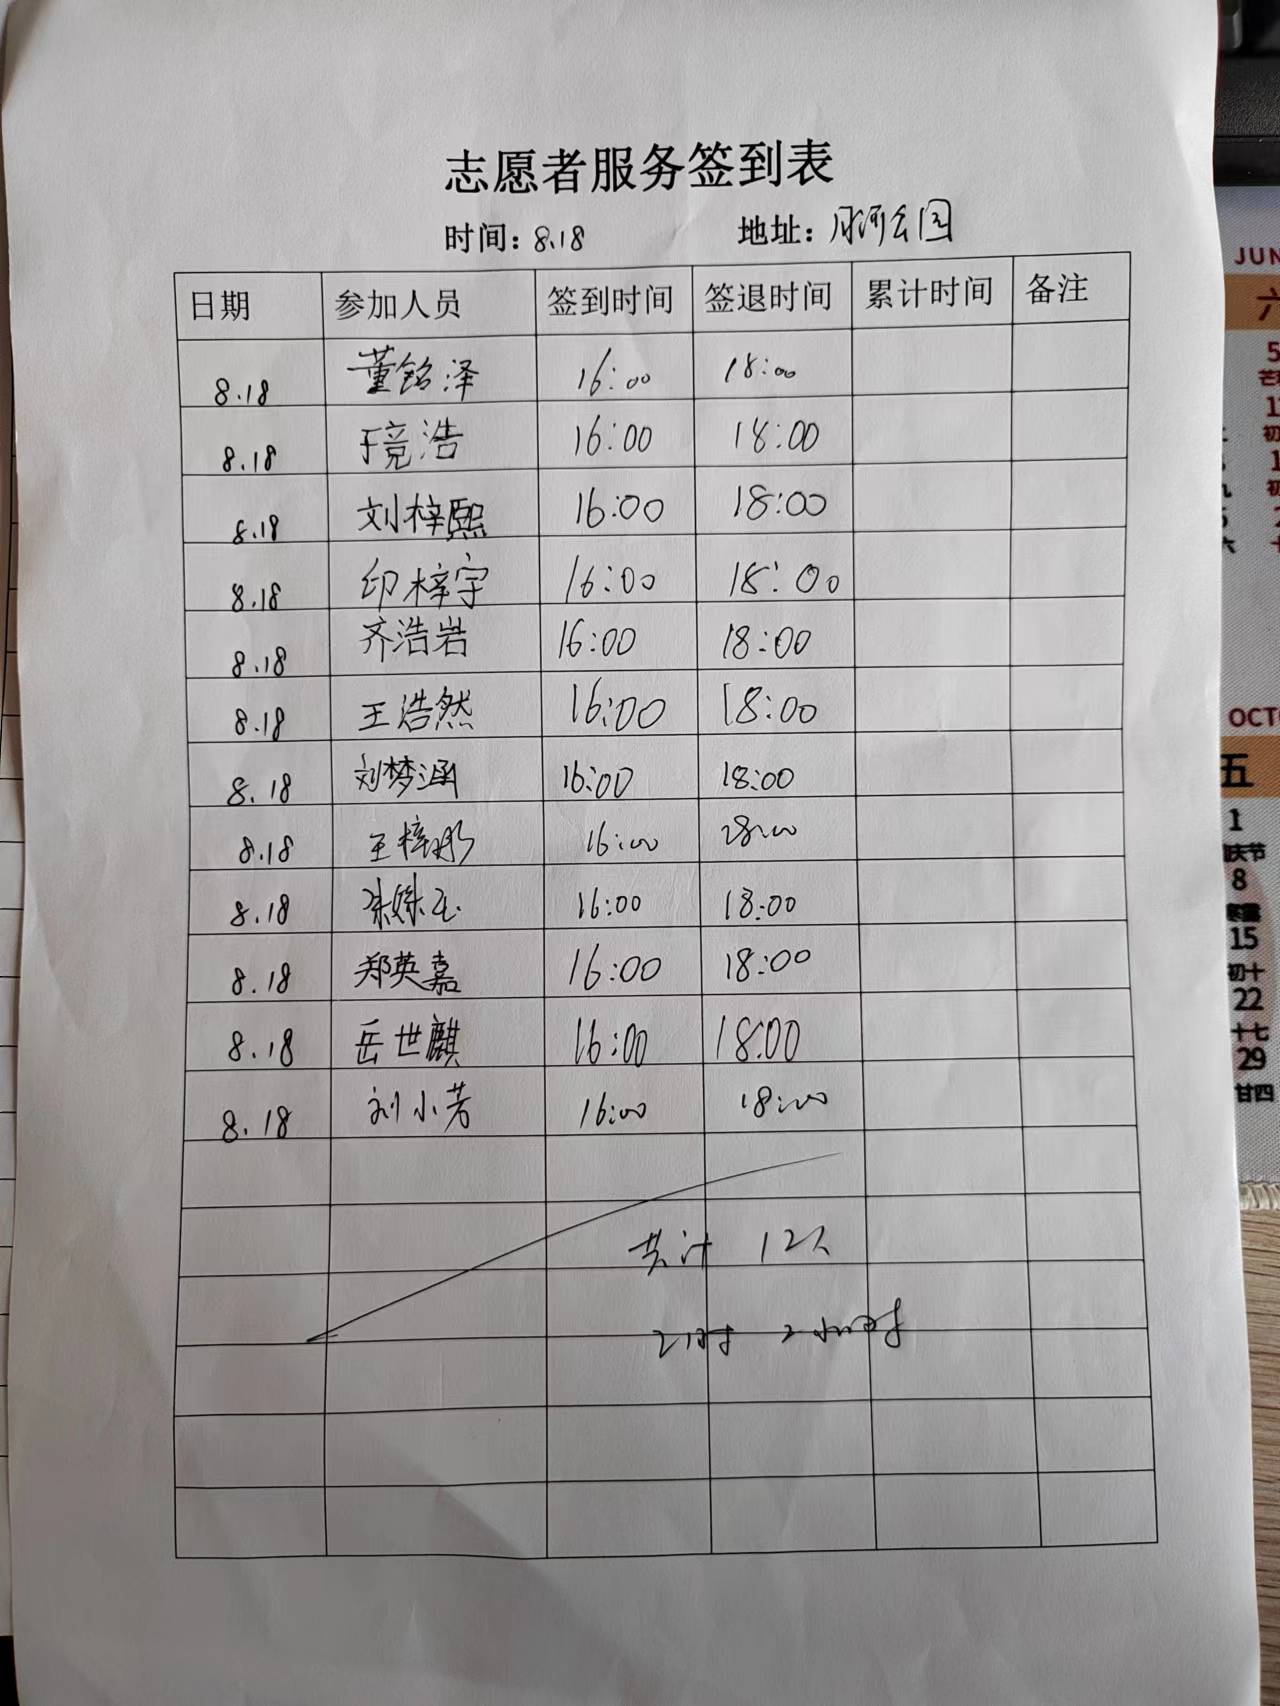 志愿者服务签到表
时间：8.18 地址：月河公园
日期 参加人员 签到时间 签退时间 累计时间 备注
8.18 董铭泽 16:00 18:00
8.18 于竞浩 16:00 18:00
8.18 刘梓熙 16:00 18:00
8.18 印梓宇 16:00 18:00
8.18 齐浩岩 16:00 18:00
8.18 王浩然 16:00 18:00
8.18 刘梦涵 16:00 18:00
8.18 王梓彤 16:00 18:00
8.18 16:00 18:00
8.18 郑英嘉 16:00 18:00
8.18 岳世麒 16:00 18:00
8.18 刘小芳 16:00 18:00
共计 12人
2小时
JUN
六
5
OCT
五
1
庆节
8
15
初十
22
十七
29
廿四